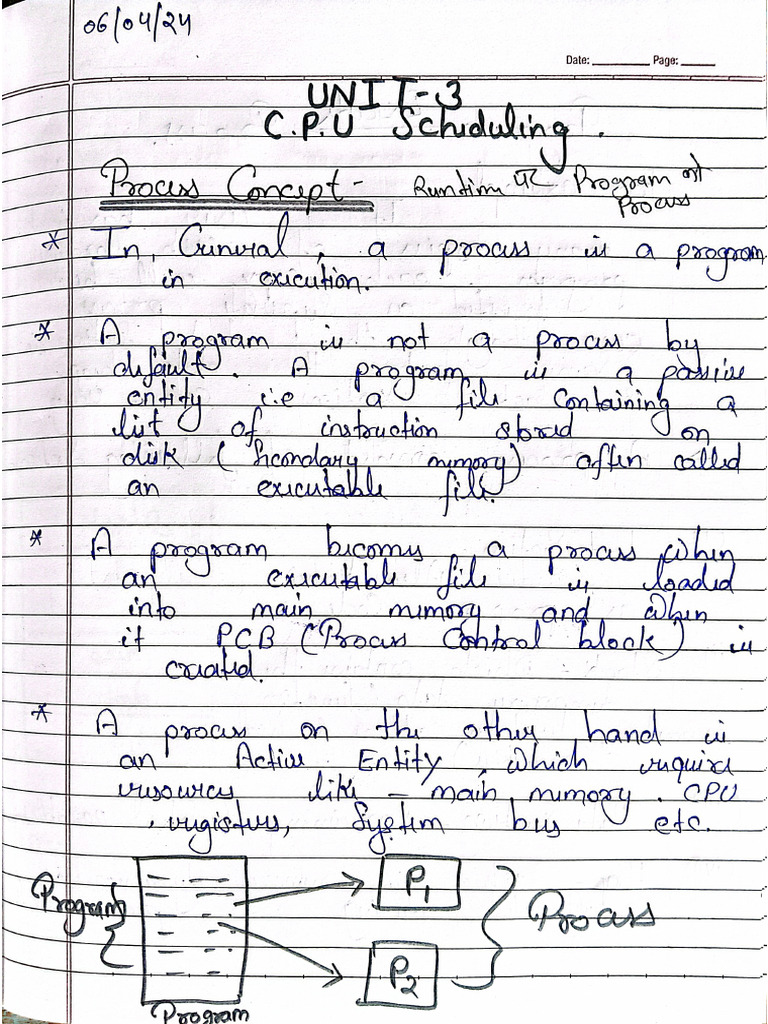 06/04/24
Date: ________ Page: _____
UNIT-3
C.P.U Schiduling.
Process Concept - Runtime पर Program को
Process
* In General, a process is a program
in execution.
* A program is not a process by
default. A program is a passive
entity i.e a file containing a
list of instruction stored on
disk (Secondary memory) often called
an executable file.
* A program becomes a process when
an executable file is loaded
into main memory and when
it PCB (Process Control block) is
created.
* A process on the other hand is
an Active Entity, which require
resources like - main memory. CPU
, registers, System bus etc.
Program
P1
Process
P2
Program